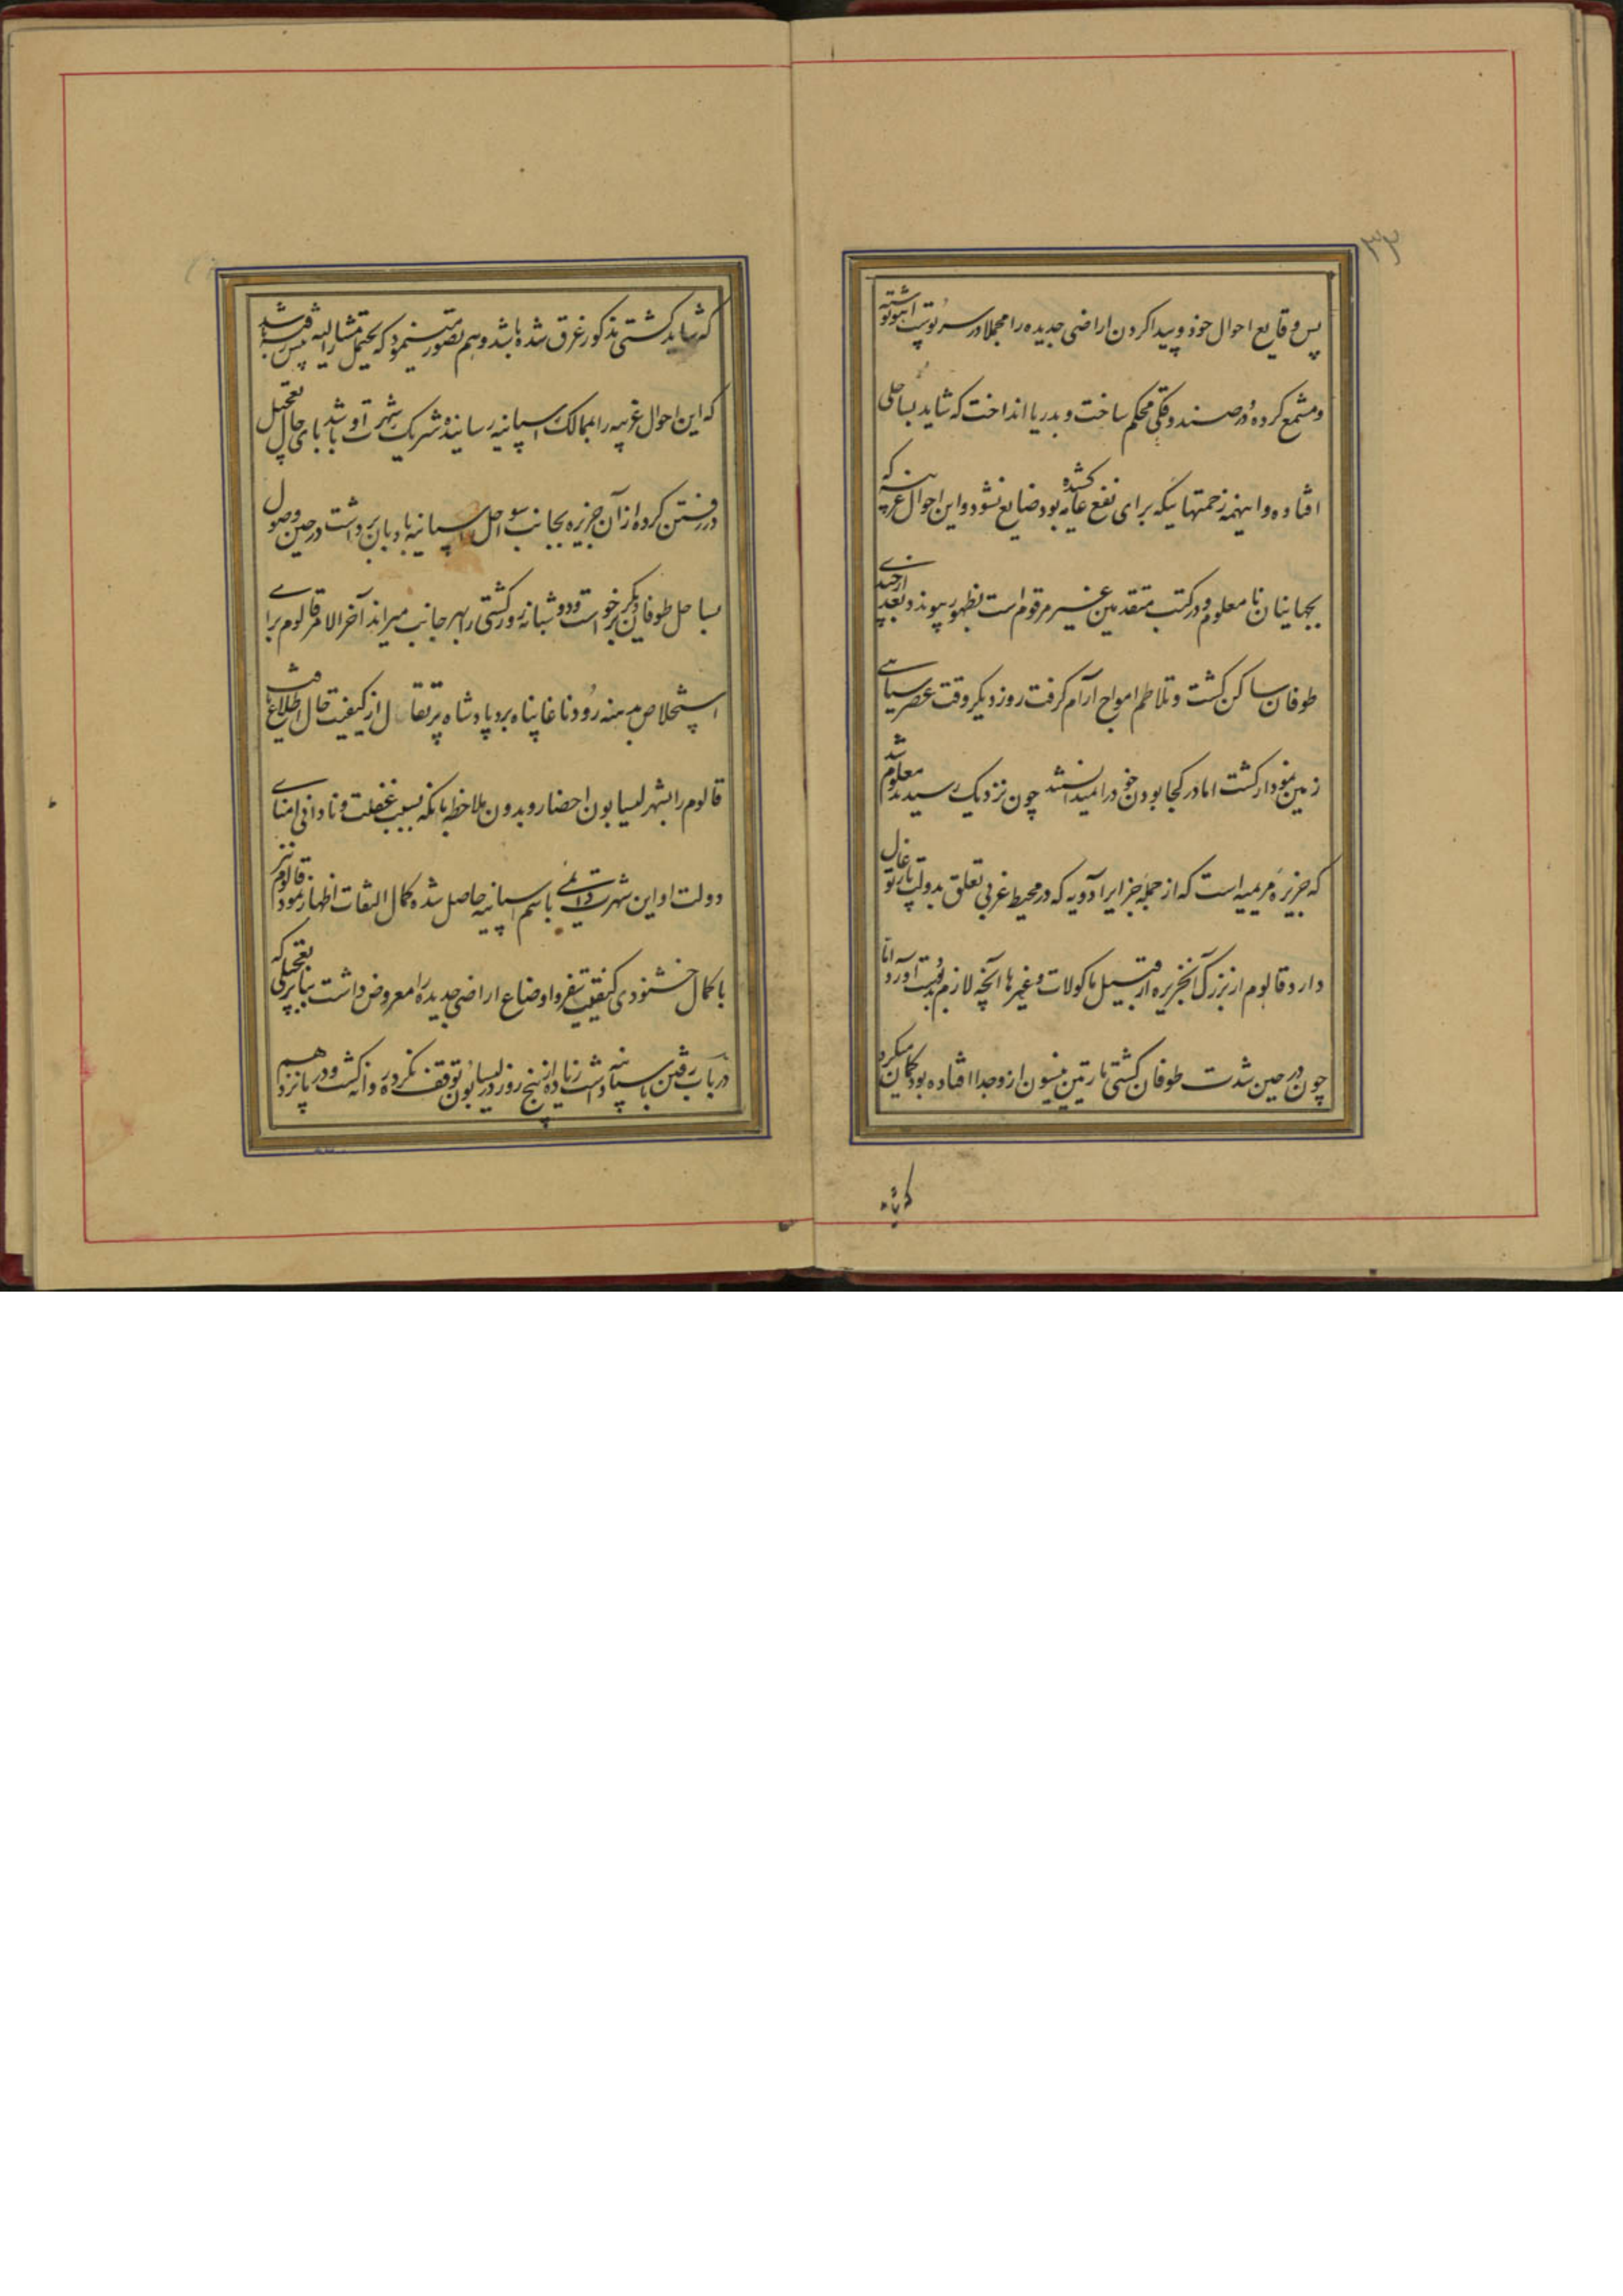 ۳۳
پس وقایع احوال خود و پیدا کردن اراضی جدیده را مجملا در سر توپ نوشته
و مشمع کرده در صندوقی محکم ساخت و بدریا انداخت که شاید بساحلی
افتاده و اینهمه زحمتهائیکه برای نفع عامه کشیده بود ضایع نشود و این احوال غریبه که
بجهانیان نا معلوم و در کتب متقدمین غیر مرقوم است بظهور پیوندد بعد از چندی
طوفان ساکن گشت و تلاطم امواج آرام گرفت روز دیگر وقت عصر سیاهی
زمین نمودار گشت اما در کجا بودن خود را نمیدانستند چون نزدیک رسیدند معلوم شد
که جزیره مریمیه است که از جمله جزایر آدویه که در محیط غربی تعلق بدولت پارتوغال
دارد قالوم از بزرگ آنجزیره از قبیل ماکولات و غیرها آنچه لازم بود بدست آورد اما
چون در حین شدت طوفان کشتی مارتین نیسون ازو جدا افتاده بود گمان میکرد
که شاید
که شاید کشتی مذکور غرق شده باشد و هم تصور مینمود که یحتمل مشار الیه پیش رفته باشد
که این احوال غریبه را بممالک اسپانیه رسانیده شریک شهرت او باشد بای حال تعجیل
در رفتن کرده از آن جزیره بجانب سواحل اسپانیه بادبان برداشت در حین وصول
بساحل طوفان دیگر برخواست و دو شبانه روز کشتی را بهر جانب میراند آخر الامر قالوم برای
استخلاص به بنه رودنا غا پناه برد پادشاه پرتقال از کیفیت حال اطلاع یافت
قالوم را بشهر لیسابون احضار و بدون ملاحظه بانکه بسبب غفلت و نادانی امنای
دولت او این شهرت دائمی باسم اسپانیه حاصل شده کمال التفات اظهار نمود قالوم نیز
با کمال خشنودی کیفیت سفر و اوضاع اراضی جدیده را معروض داشت بنابر تعجیلی که
در باب رفتن باسپانیه داشت زیاده از پنج روز در لیسابون توقف نکرده روانه گشت و در پانزدهم